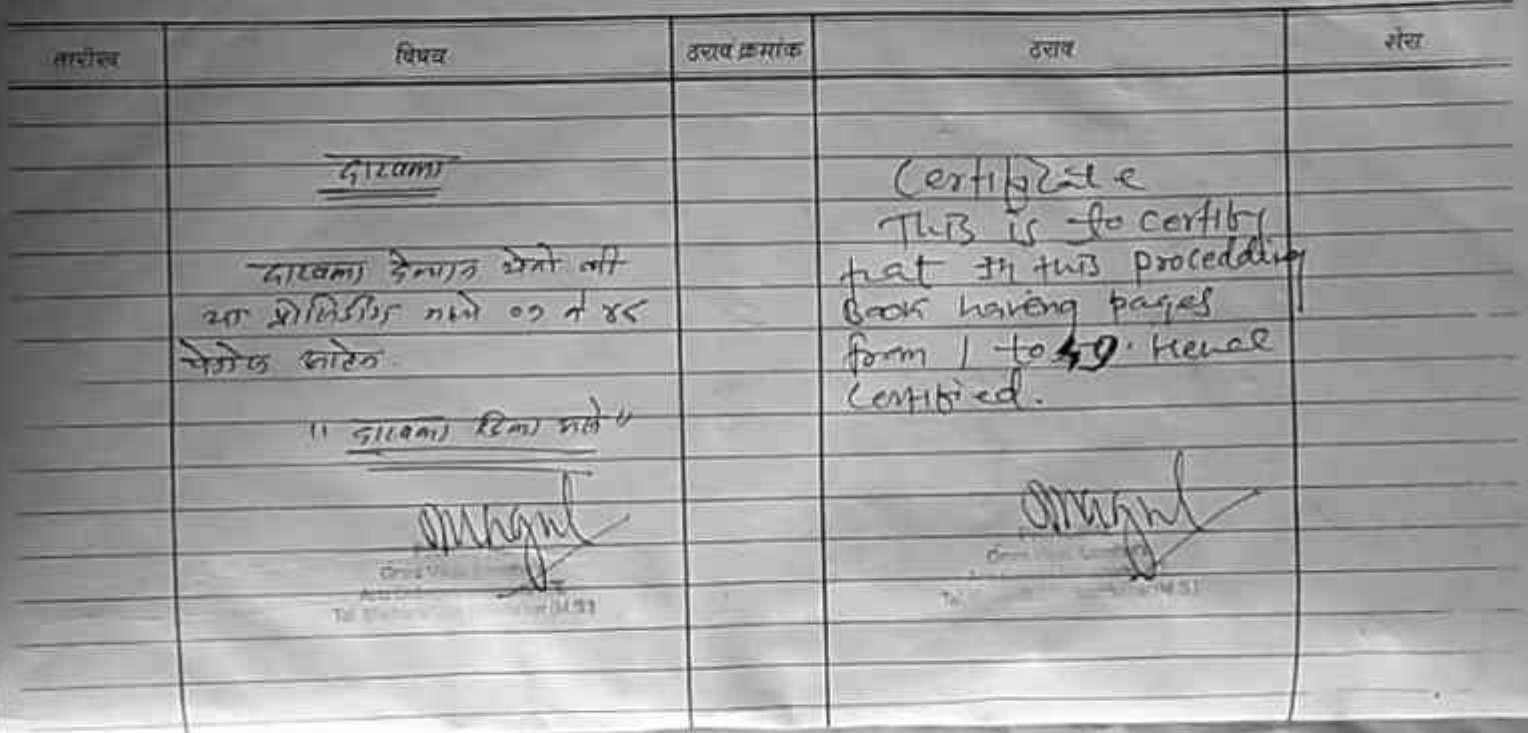 तारीख विषय ठराव क्रमांक ठराव शेरा
दाखला
दाखला देण्यात येतो की
या प्रोसिडींग मध्ये ०१ ते
आहेत
" दाखला दिला असे "
Certificate
This is to certify
that in this procedding
Book having pages
form 1 to 49. Hence
Certified.